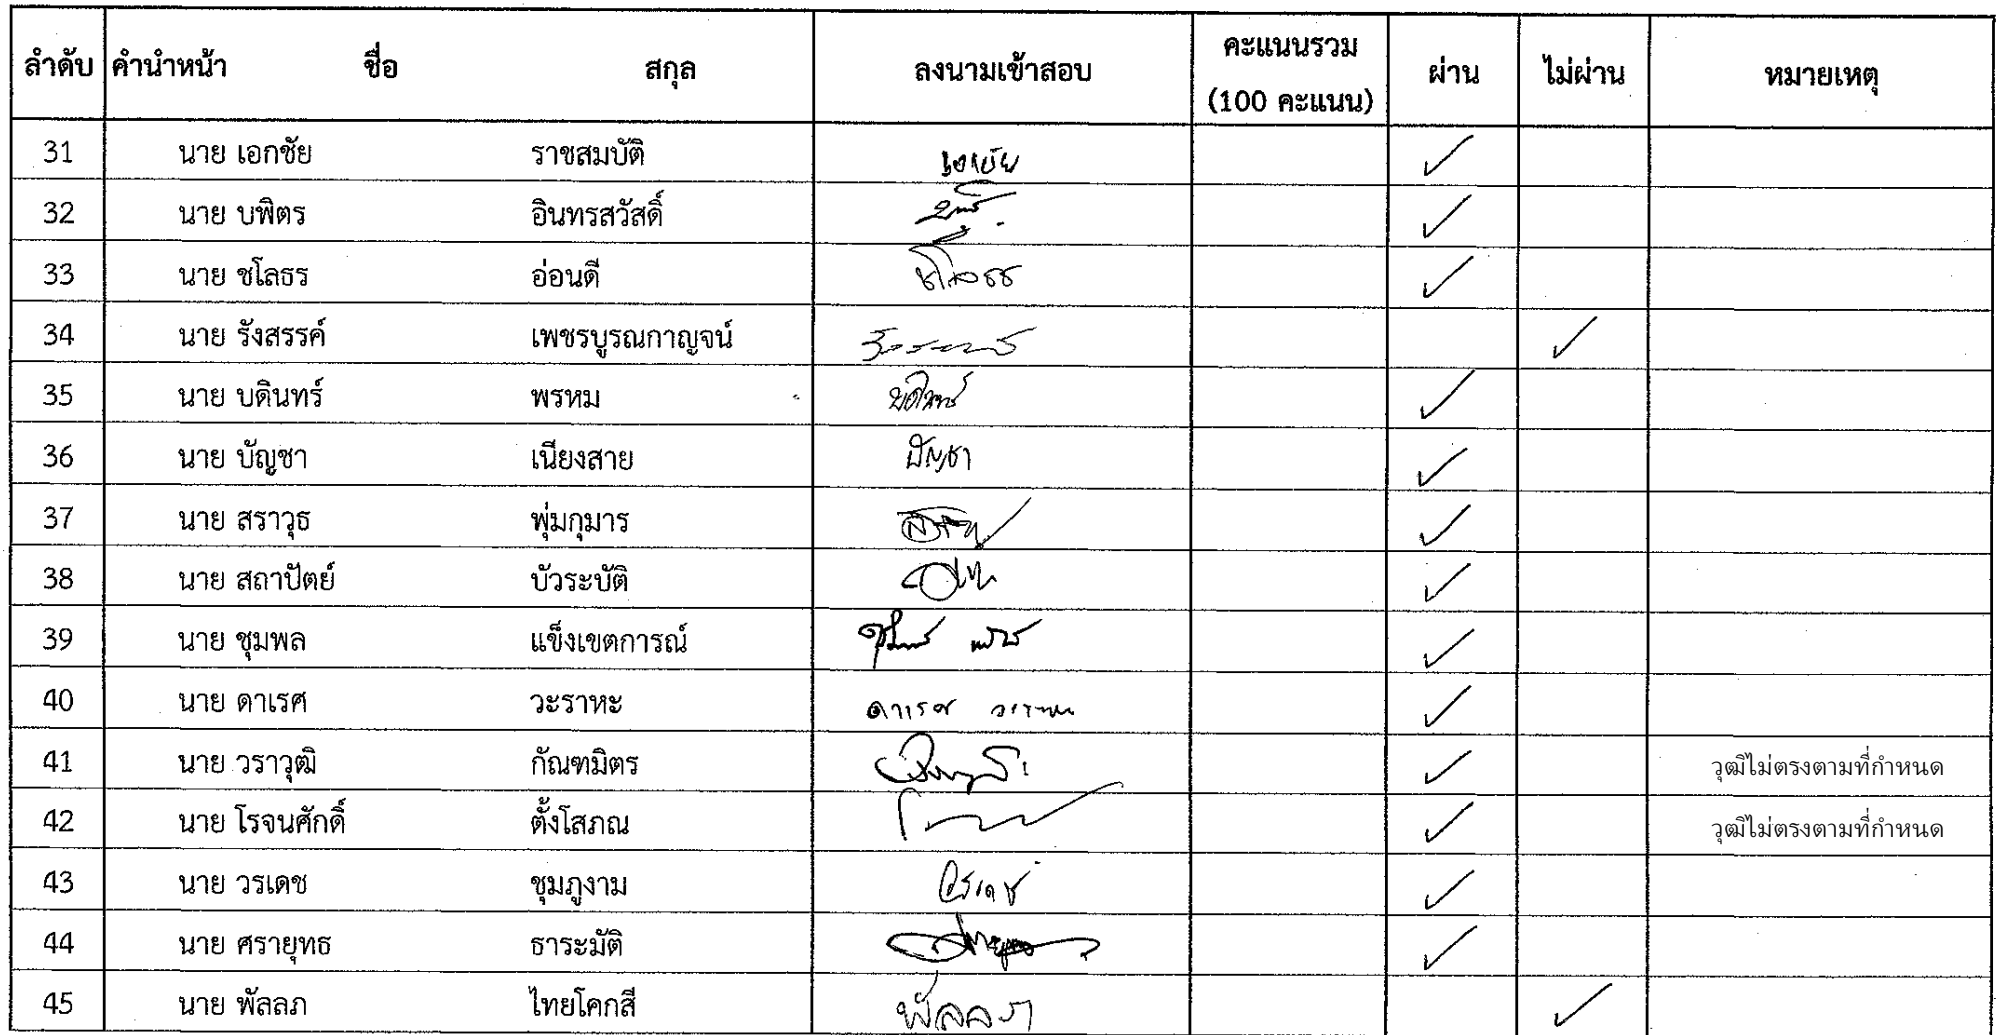 ลำดับ คำนำหน้า ชื่อ สกุล ลงนามเข้าสอบ คะแนนรวม (100 คะแนน) ผ่าน ไม่ผ่าน หมายเหตุ
31 นาย เอกชัย ราชสมบัติ เอกชัย ✓
32 นาย บพิตร อินทรสวัสดิ์ ✓
33 นาย ชโลธร อ่อนดี ชโลธร ✓
34 นาย รังสรรค์ เพชรบูรณกาญจน์ ✓
35 นาย บดินทร์ พรหม บดินทร์ ✓
36 นาย บัญชา เนียงสาย บัญชา ✓
37 นาย สราวุธ พุ่มกุมาร ✓
38 นาย สถาปัตย์ บัวระบัติ ✓
39 นาย ชุมพล แข็งเขตการณ์ ✓
40 นาย ดาเรศ วะราหะ ดาเรศ วะราหะ ✓
41 นาย วราวุฒิ กัณฑมิตร ✓ วุฒิไม่ตรงตามที่กำหนด
42 นาย โรจนศักดิ์ ตั้งโสภณ ✓ วุฒิไม่ตรงตามที่กำหนด
43 นาย วรเดช ชุมภูงาม วรเดช ✓
44 นาย ศรายุทธ ธาระมัติ ✓
45 นาย พัลลภ ไทยโคกสี พัลลภ ✓